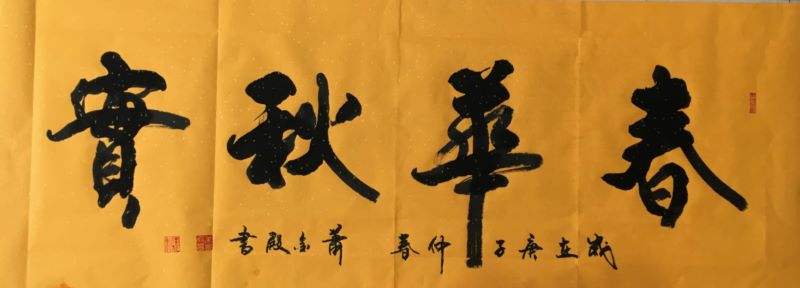 春華秋實
歲在庚子仲春 蕭金殿書